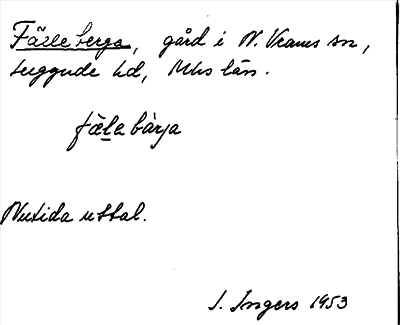 Färleberga, gård i N. Vrams sn,
Luggude hd, Mhs län.
fæ̱lebàrja
Nutida uttal.
I. Ingers 1953